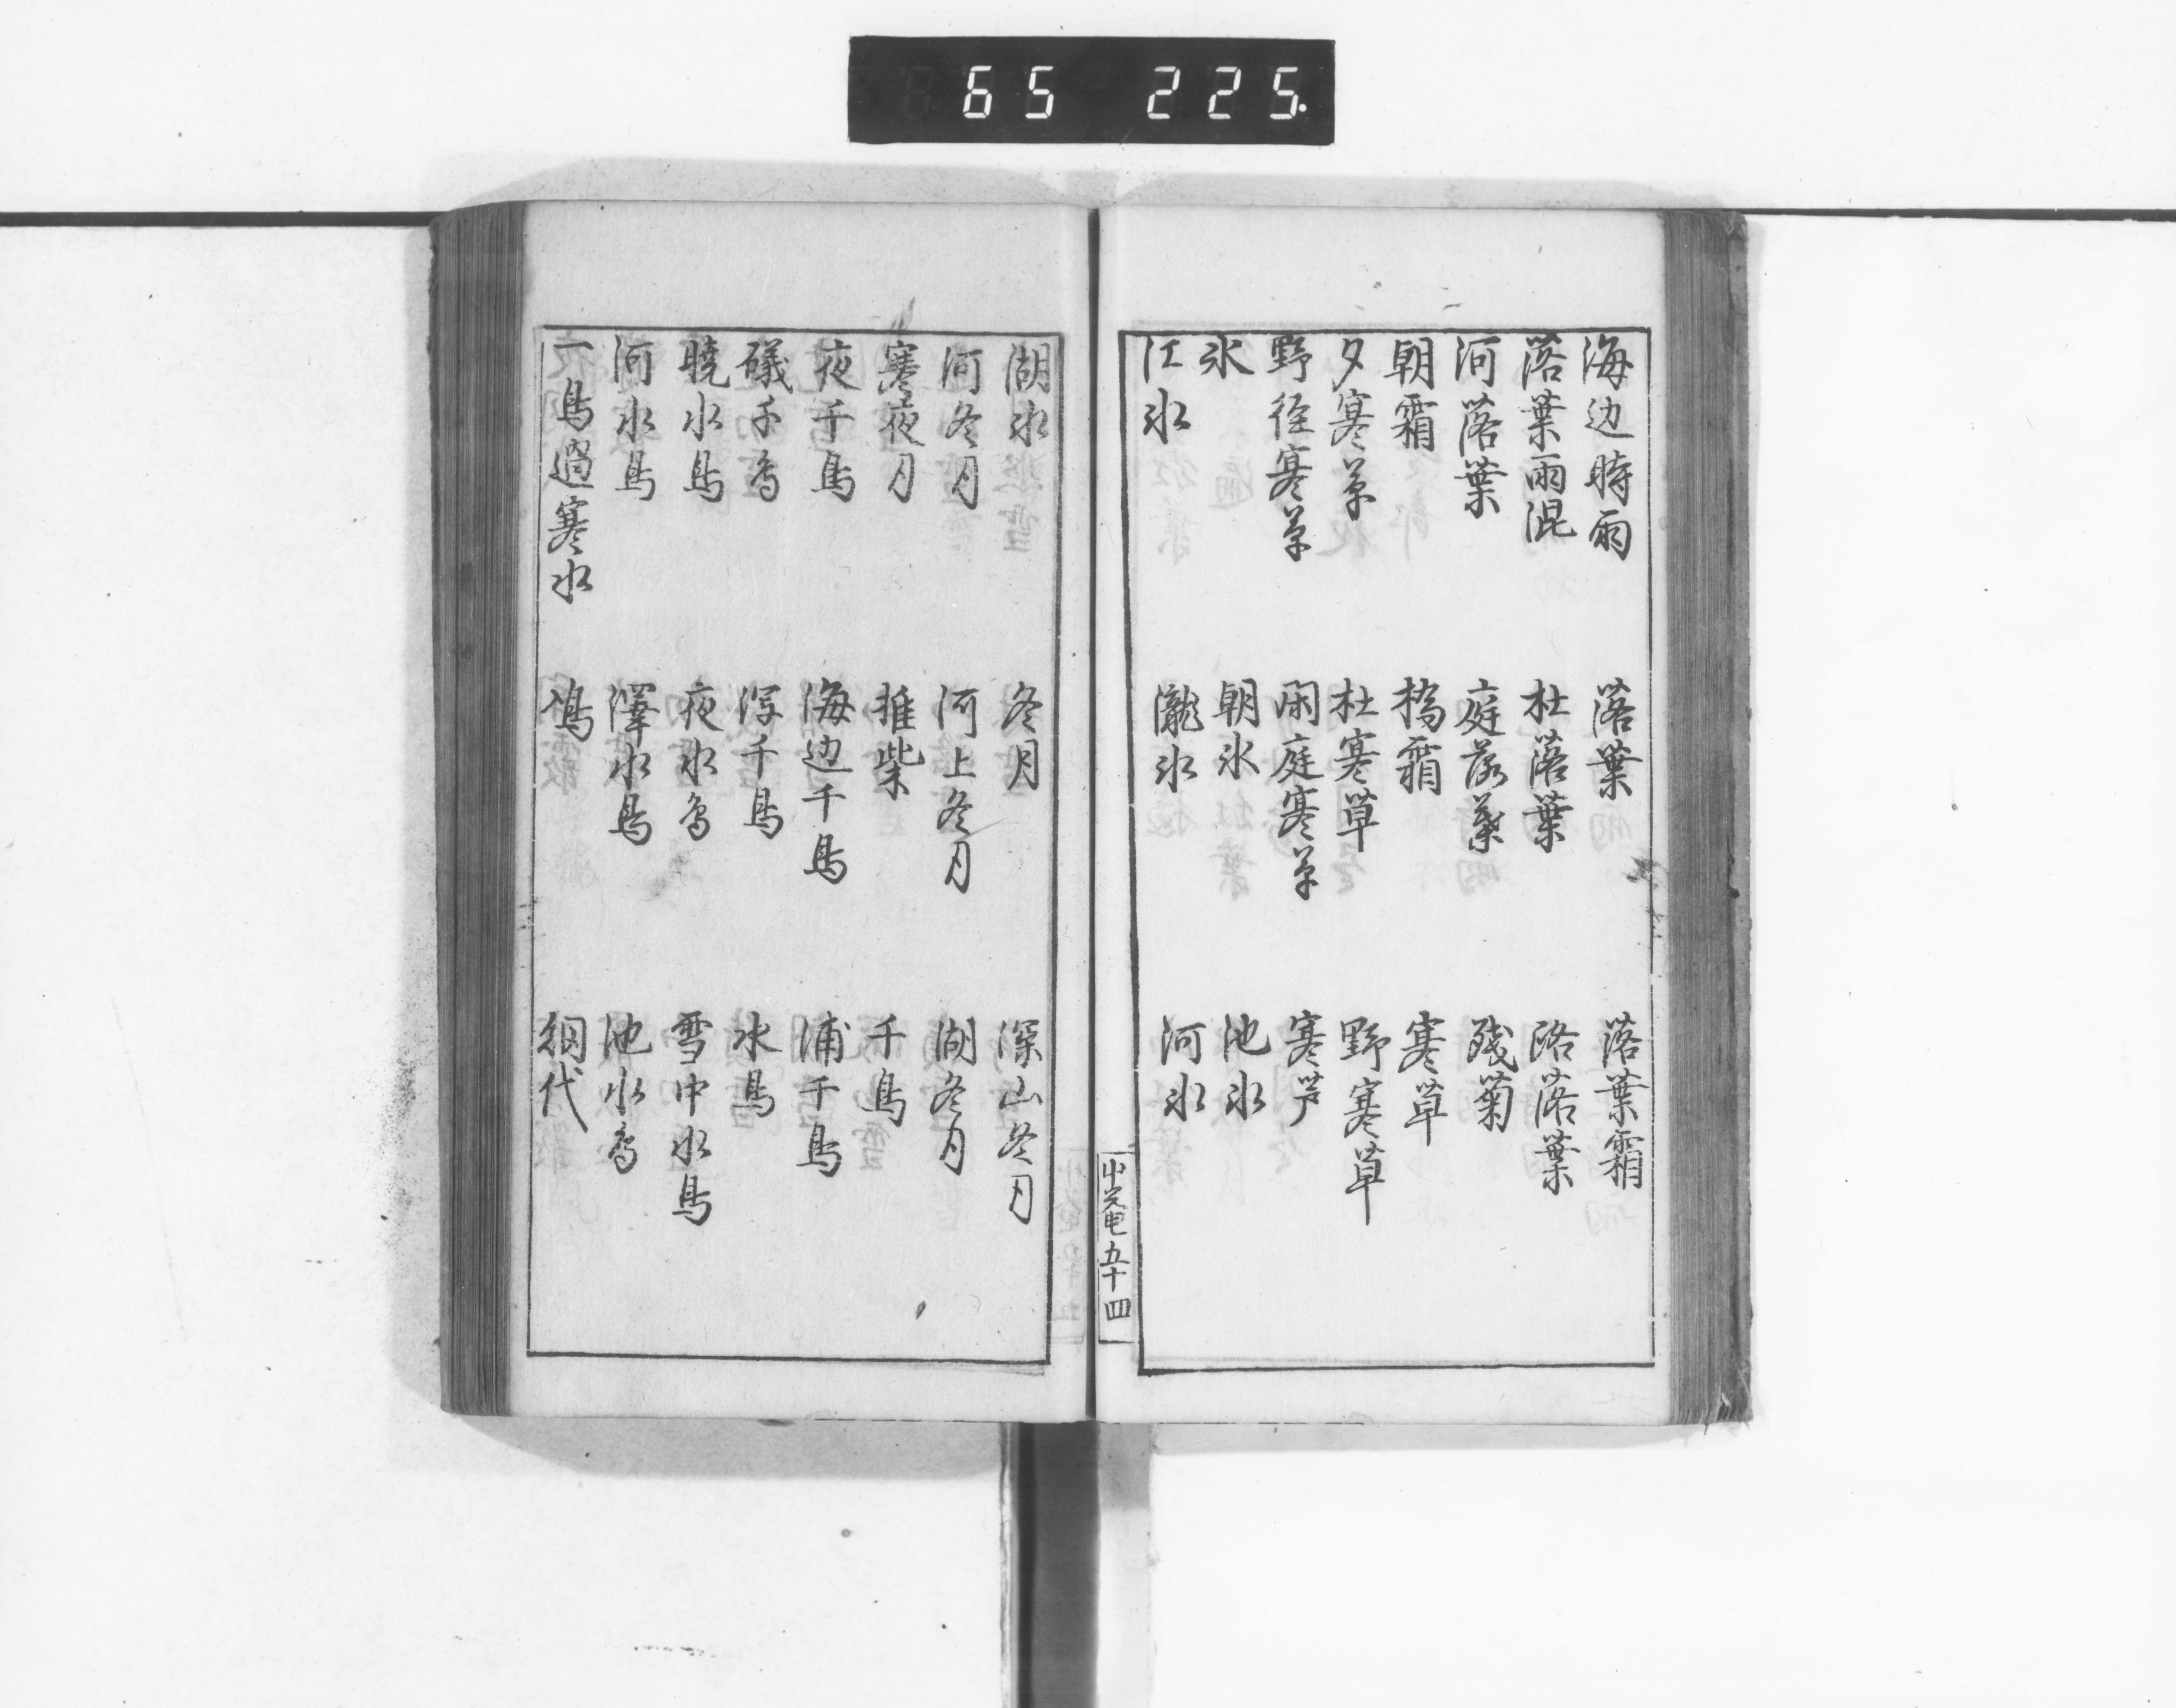 65 225.
海边時雨 落葉 落葉霜
落葉雨混 杜落葉 路落葉
河落葉 庭落葉 残菊
朝霜 橋霜 寒草
夕寒草 杜寒草 野寒草
野径寒草 閑庭寒草 寒芦
氷 朝氷 池氷
江氷 瀧氷 河氷
五十四
湖氷 冬月 深山冬月
河冬月 河上冬月 湖冬月
寒夜月 椎柴 千鳥
夜千鳥 海边千鳥 浦千鳥
礒千鳥 浮千鳥 水鳥
暁水鳥 夜水鳥 雪中水鳥
河水鳥 澤水鳥 池水鳥
一鳥過寒水 鳰 網代